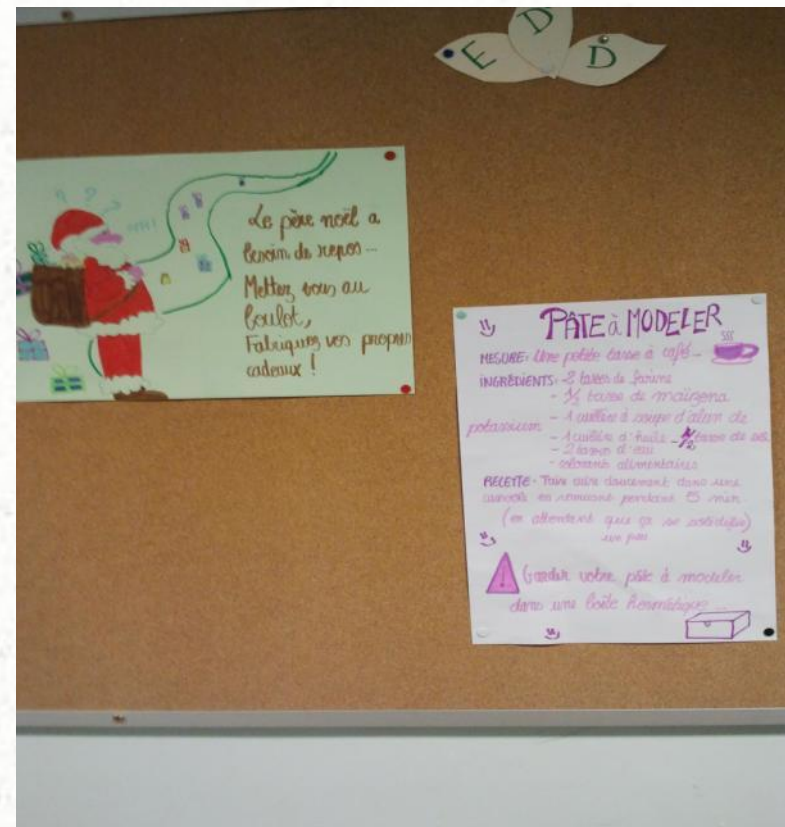 E D D
Le père noël a
besoin de repos...
Mettez vous au
boulot,
Fabriquez vos propres
cadeaux !
PÂTE à MODELER
MESURE: Une petite tasse à café...
INGRÉDIENTS: - 2 tasses de farine
- 1/2 tasse de maïzena
- 1 cuillère à soupe d'alun de
potassium
- 1 cuillère d'huile - 1/2 tasse de sel
- 2 tasses d'eau
- colorants alimentaires
RECETTE - Faire cuire doucement dans une
casserole en remuant pendant 5 min
(en attendant que ça se solidifie)
un peu
Garder votre pâte à modeler
dans une boîte hermétique...